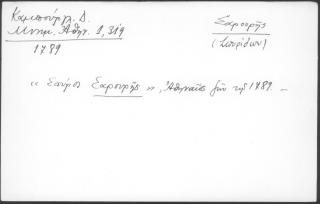 Καμπούρογλ. Δ.
Μνημ. Ἀθην. 1, 319
1789
Σαρουρῆς
(Σπυρίδων)
« Σπύρος Σαρουρῆς », Ἀθηναῖος ζῶν τῷ 1789. —